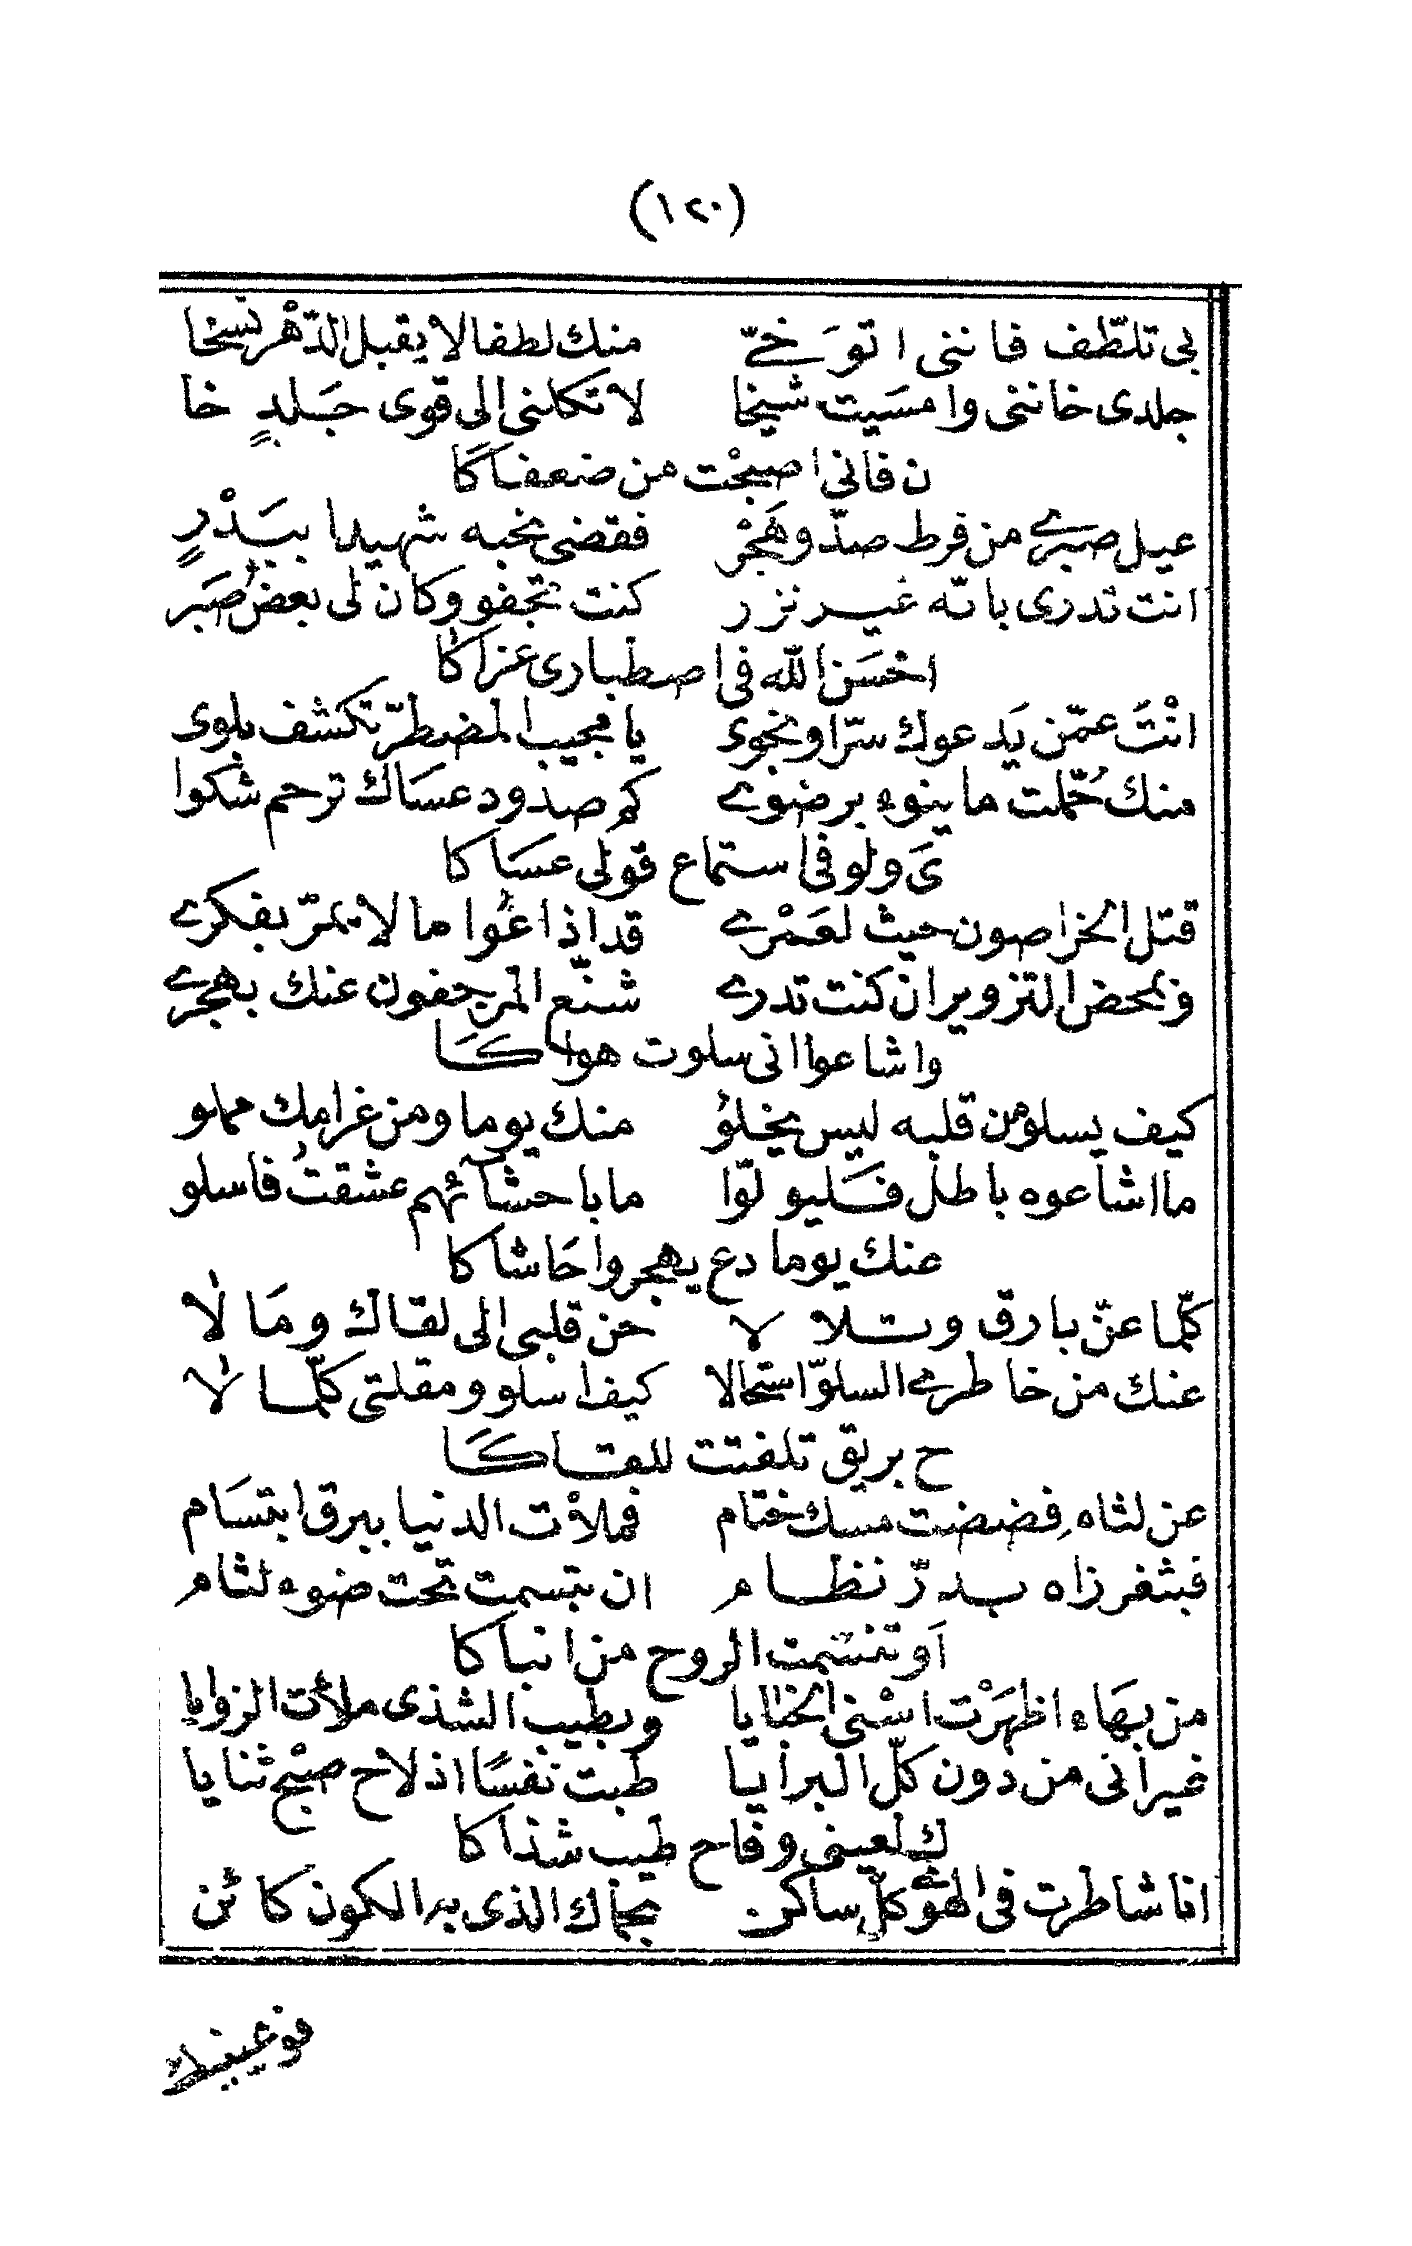 (١٢٠)
بي تلطّف فاننى اتوَخّى منك لطفا لا يقبل الدّهْر نسخا
جلدى خاننى وامسَيت شيخا لا تكلنى الى قوى جَلدٍ خا
ن فاني اصبحْت من ضعفاكَا
عيل صبرى من فرط صدّ وهَجْر فقضى نحبه شهيدا ببَدْرٍ
انت تدرى بانّه غير نزر كنت تجفو وكان لى بعض صَبر
احْسَن الله فى اصطبارى عزاكا
انْتَ عمّن يَدعوك سرّا ونجوى يا مجيب المضطرّ تكشف بلوى
منك حُمّلت ما ينوء برضوى كم صدود عسَاك ترحم شكوا
ىَ ولو فى استماع قولى عسَاكا
قتل الخراصون حيث لعَمْرى قد اذاعُوا ما لا يمرّ بفكرى
وبمحض التزوير ان كنت تدرى شنّع المرجفون عنك بهجرى
واشاعوا انى سلوت هواكَا
كيف يسلو من قلبه ليس يخلوُ منك يوما ومن غرامك مملو
ما اشاعوه باطل فَليولّوا ما باحشآئهم عشقتُ فاسلو
عنك يوما دع يهجروا حَاشاكا
كلّما عنّ بارق وتلالا حن قلبى الى لقاك ومَالا
عنك من خاطرى السلوّ استحالا كيف اسلو ومقلتى كلّما لا
ح بريق تلفتت للقاكَا
عن لثاه فضضت مسك ختام فملأت الدنيا ببرق ابتسَام
فبثغر زاه بدرّ نظام ان تبسمت تحت ضوء لثام
اَو تنسّمت الروح من انباكا
من بهَاء اظهَرْت اسْنى الخبايا وبطيب الشذى ملأت الزوايا
غير انى من دون كلّ البرايا طبت نفسًا اذ لاح صبْح ثنايا
ك لعينى وفاح طيب شذاكا
انا شاطرت فى الهوى كلّ ساكن بجماك الذى به الكون كائن